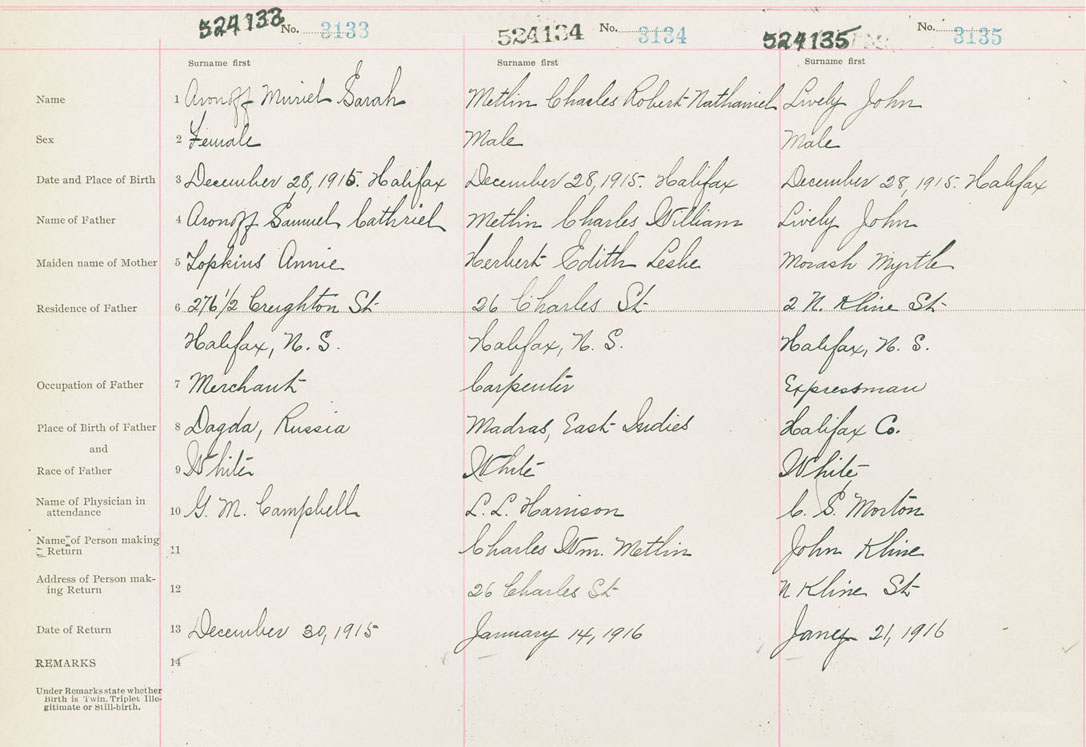 524133 No. 3133 524134 No. 3134 524135 No. 3135
Surname first Surname first Surname first
Name 1 Aronoff Muriel Sarah Metlin Charles Robert Nathaniel Lively John
Sex 2 Female Male Male
Date and Place of Birth 3 December 28, 1915. Halifax December 28, 1915. Halifax December 28, 1915. Halifax
Name of Father 4 Aronoff Samuel Cathriel Metlin Charles William Lively John
Maiden name of Mother 5 Lopkins Annie Herbert Edith Leslie Morash Myrtle
Residence of Father 6 276 1/2 Creighton St 26 Charles St 2 N. Kline St
Halifax, N. S. Halifax, N. S. Halifax, N. S.
Occupation of Father 7 Merchant Carpenter Expressman
Place of Birth of Father 8 Dagda, Russia Madras, East Indies Halifax Co.
and
Race of Father 9 White White White
Name of Physician in
attendance 10 G. M. Campbell L. L. Harrison C. S. Morton
Name of Person making
Return 11 Charles Wm. Metlin John Kline
Address of Person mak-
ing Return 12 26 Charles St N Kline St
Date of Return 13 December 30, 1915 January 14, 1916 Janey 21, 1916
REMARKS 14
Under Remarks state whether
Birth is Twin, Triplet Ille-
gitimate or Still-birth.